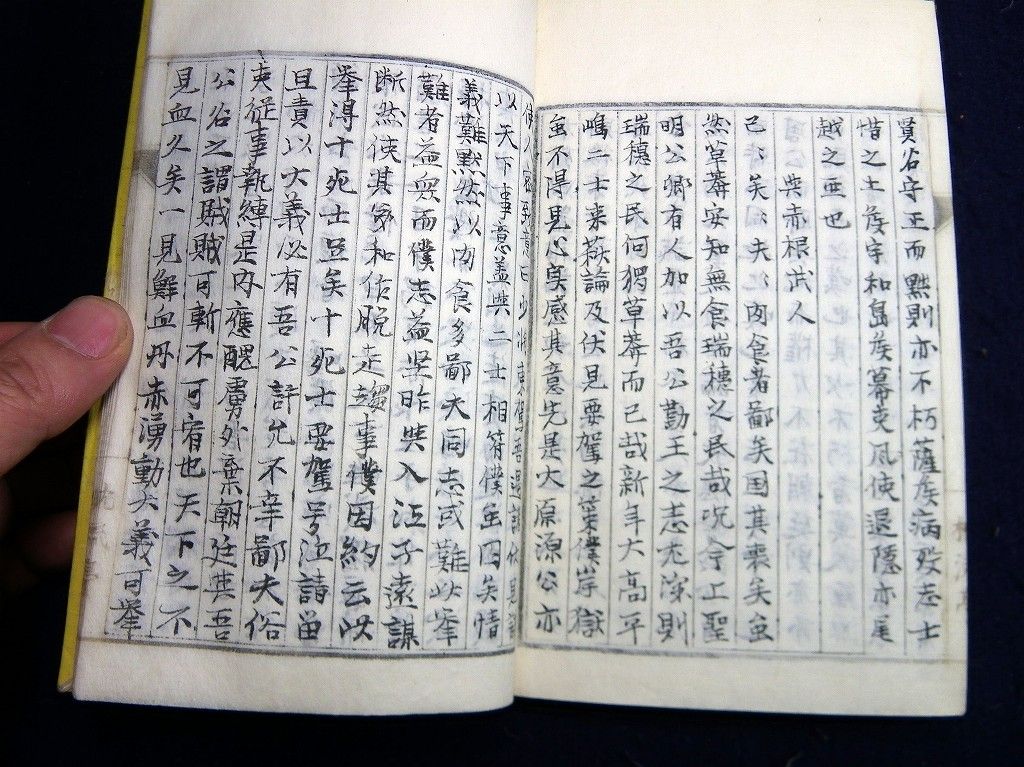 貫谷守王而黙則亦不朽薩矦病歿志士
惜之土矦宇和島矦幕吏風使退隠亦尾
越之亜也
与赤根武人
已矣夫肉食者鄙矣国其衰矣虽
然草莽安知無食瑞穂之民哉况今上聖
明公卿有人加以吾公勤王之志尤深則
瑞穂之民何独草莽而已哉新年大高平
嶋二士来萩論及伏見要駕之策僕岸獄
虽不得見心実感其意先是大原源公亦
以天下事意蓋与二士相符僕虽囚矣情
義難黙然以肉食多鄙夫同志或難此挙
難者益衆而僕志益坚昨与入江子遠謀
断然使其弟和作脱走趨事僕因約云此
挙得十死士足矣十死士要駕号泣請留
且責以大義必有吾公許允不幸鄙夫俗
吏従事執縛是内應醜虜外棄朝廷与吾
公名之謂賊賊可斬不可宥也天下之不
見血久矣一見鮮血丹赤湧動大義可挙